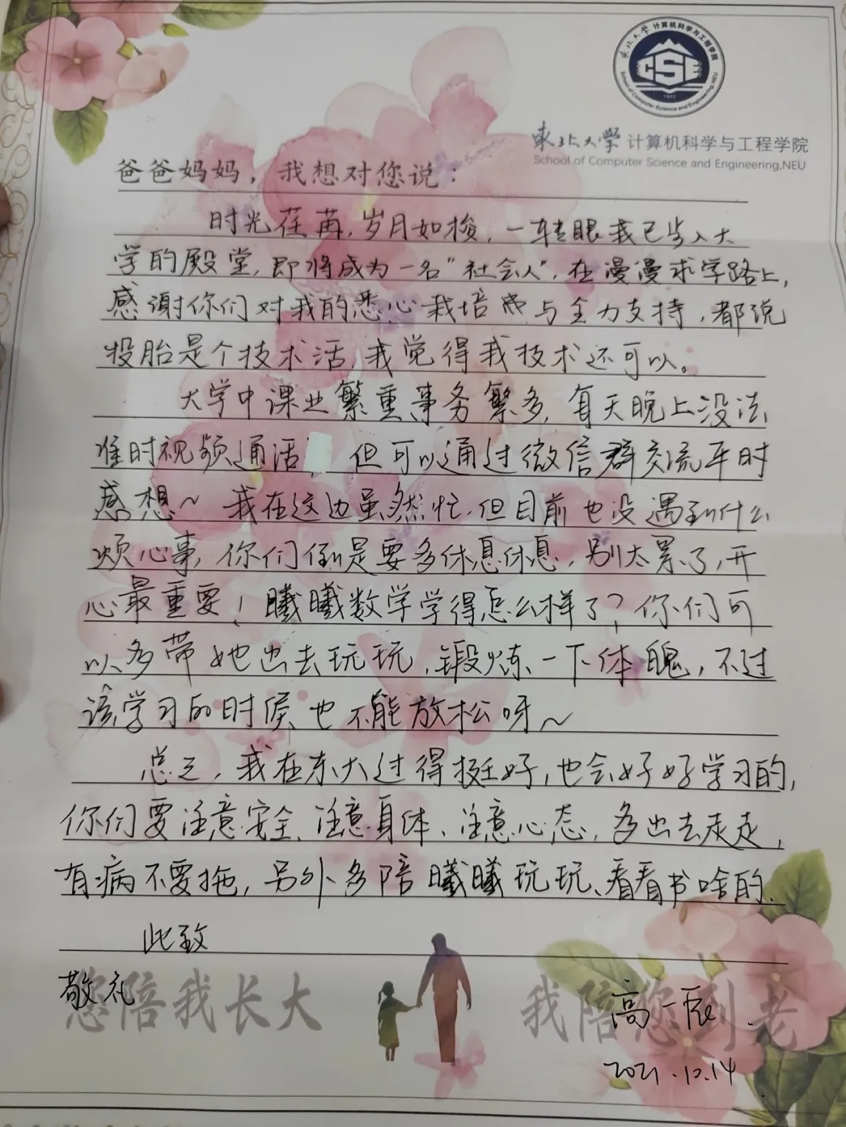 东北大学 计算机科学与工程学院
CSE
School of Computer Science and Engineering, NEU
东北大学 计算机科学与工程学院
School of Computer Science and Engineering,NEU
爸爸妈妈，我想对您说：
时光荏苒，岁月如梭，一转眼我已步入大
学的殿堂，即将成为一名“社会人”，在漫漫求学路上，
感谢你们对我的悉心栽培与全力支持，都说
投胎是个技术活，我觉得我技术还可以。
大学中课业繁重事务繁多，每天晚上没法
准时视频通话 但可以通过微信群交流平时
感想~ 我在这边虽然忙，但目前也没遇到什么
烦心事，你们倒是要多休息休息，别太累了，开
心最重要！曦曦数学学得怎么样了？你们可
以多带她出去玩玩，锻炼一下体魄，不过
该学习的时候也不能放松呀~
总之，我在东大过得挺好，也会好好学习的，
你们要注意安全、注意身体、注意心态，多出去走走，
有病不要拖，另外多陪曦曦玩玩、看看书啥的、
此致
敬礼
您陪我长大 我陪您到老
高一辰
2021.10.14